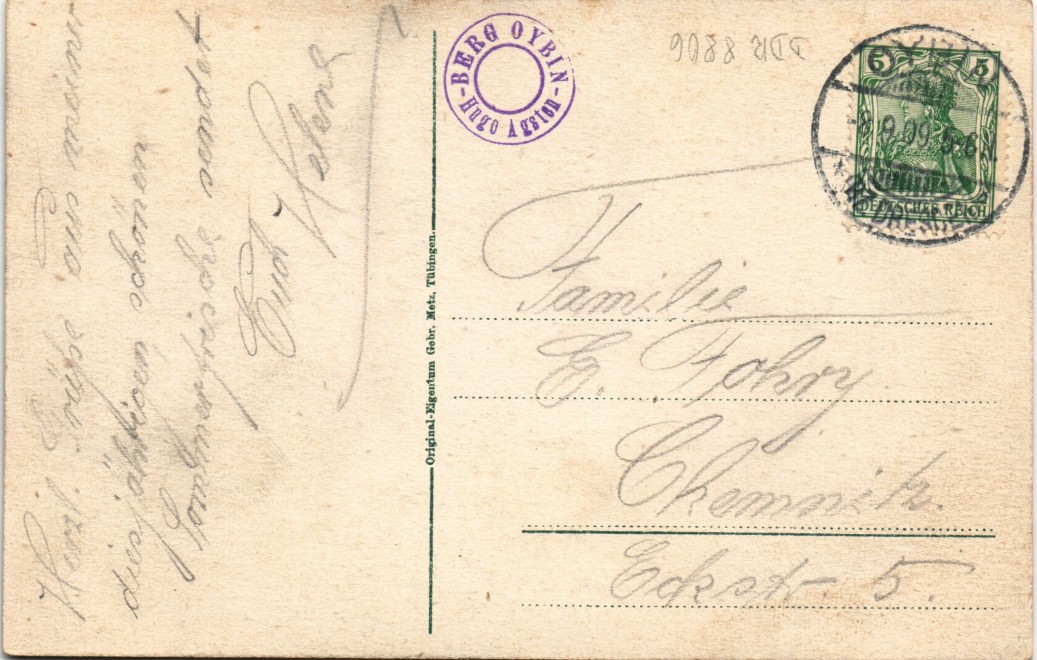 Herzl. Grüße
unserer
diesjährigen schönen
Sommerfrische
Eud. Helene
BERG OYBIN
Hugo Agsten
9088
5 5
8.9.09. 5-6 N
DEUTSCHES REICH
Original-Eigentum Gebr. Metz, Tübingen.
Familie
E. Fohry
Chemnitz.
Eckstr. 5.